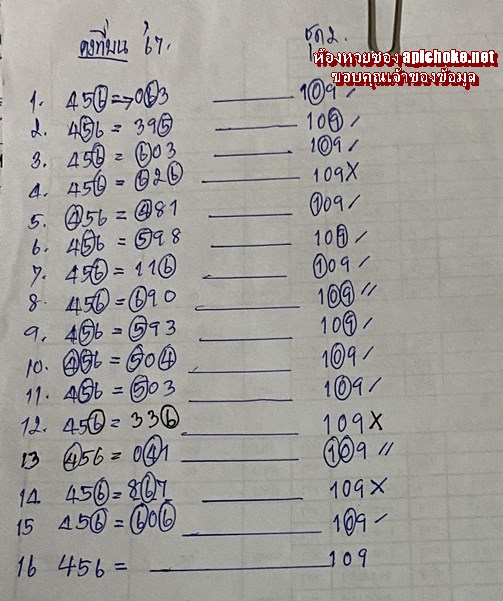 คงที่บน '67.
ชุด 2.
ห้องหวยซอง apichoke.net
ขอบคุณเจ้าของข้อมูล
1. 456 → 063 109 /
2. 456 = 395 109 /
3. 456 = 603 109 /
4. 456 = 626 109 X
5. 456 = 481 109 /
6. 456 = 598 109 /
7. 456 = 116 109 /
8. 456 = 690 109 //
9. 456 = 593 109 /
10. 456 = 504 109 /
11. 456 = 503 109 /
12. 456 = 336 109 X
13 456 = 041 109 //
14 456 = 867 109 X
15 456 = 606 109 /
16 456 = 109